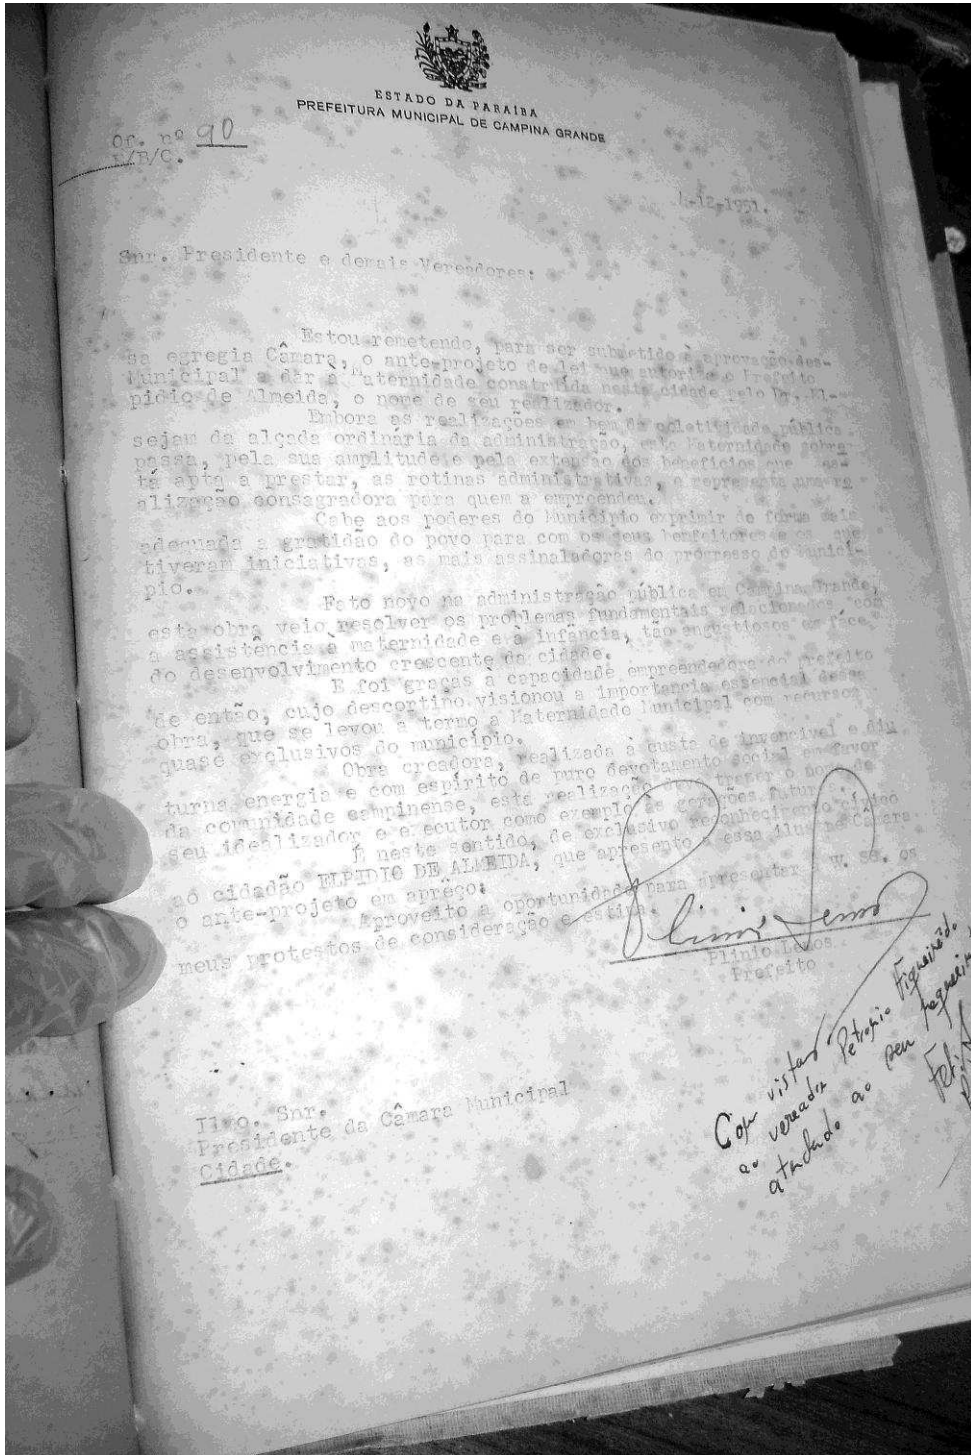 ESTADO DA PARAÍBA
PREFEITURA MUNICIPAL DE CAMPINA GRANDE
Of. nº 90
E/B/C.
4-12-1951.
Snr. Presidente e demais Vereadores:
Estou remetendo, para ser submetido à aprovação des-
sa egregia Câmara, o ante-projeto de lei que autoriza o Prefeito
Municipal a dar à Maternidade construida nesta cidade pelo Dr. El-
pidio de Almeida, o nome de seu realizador.
Embora as realizações em bem da coletividade pública
sejam da alçada ordinária da administração, esta Maternidade sobre-
passa, pela sua amplitude e pela extensão dos beneficios que es-
tá apta a prestar, as rotinas administrativas, e representa uma re
alização consagradora para quem a empreendeu.
Cabe aos poderes do Municipio exprimir de forma mais
adequada a gratidão do povo para com os seus benfeitores e os que
tiveram iniciativas, as mais assinaladoras do progresso do munici-
pio.
Fato novo na administração pública em Campina Grande,
esta obra veio resolver os problemas fundamentais relacionados com
a assistência à maternidade e à infância, tão angustiosos em fáce
do desenvolvimento crescente da cidade.
E foi graças à capacidade empreendedora do prefeito
de então, cujo descortino visionou a importancia essencial dessa
obra, que se levou a termo a Maternidade Municipal com recursos
quase exclusivos do município.
Obra creadora, realizada à custa de invencivel e diu
turna energia e com espírito de puro devotamento social em favor
da comunidade campinense, esta realização deve trazer o nome de
seu idealizador e executor como exemplo às gerações futuras.
É neste sentido, de exclusivo reconhecimento cívico
ao cidadão ELPIDIO DE ALMEIDA, que apresento a essa ilustre Câmara
o ante-projeto em aprêço.
Aproveito a oportunidade para apresentar a V. Sa. os
meus protestos de consideração e estima.
Plinio Lemos
Plinio Lemos
Prefeito
Com vistas
ao vereador Petronio Figueirêdo
atendendo ao seu
Ilmo. Snr.
Presidente da Câmara Municipal
Cidade.